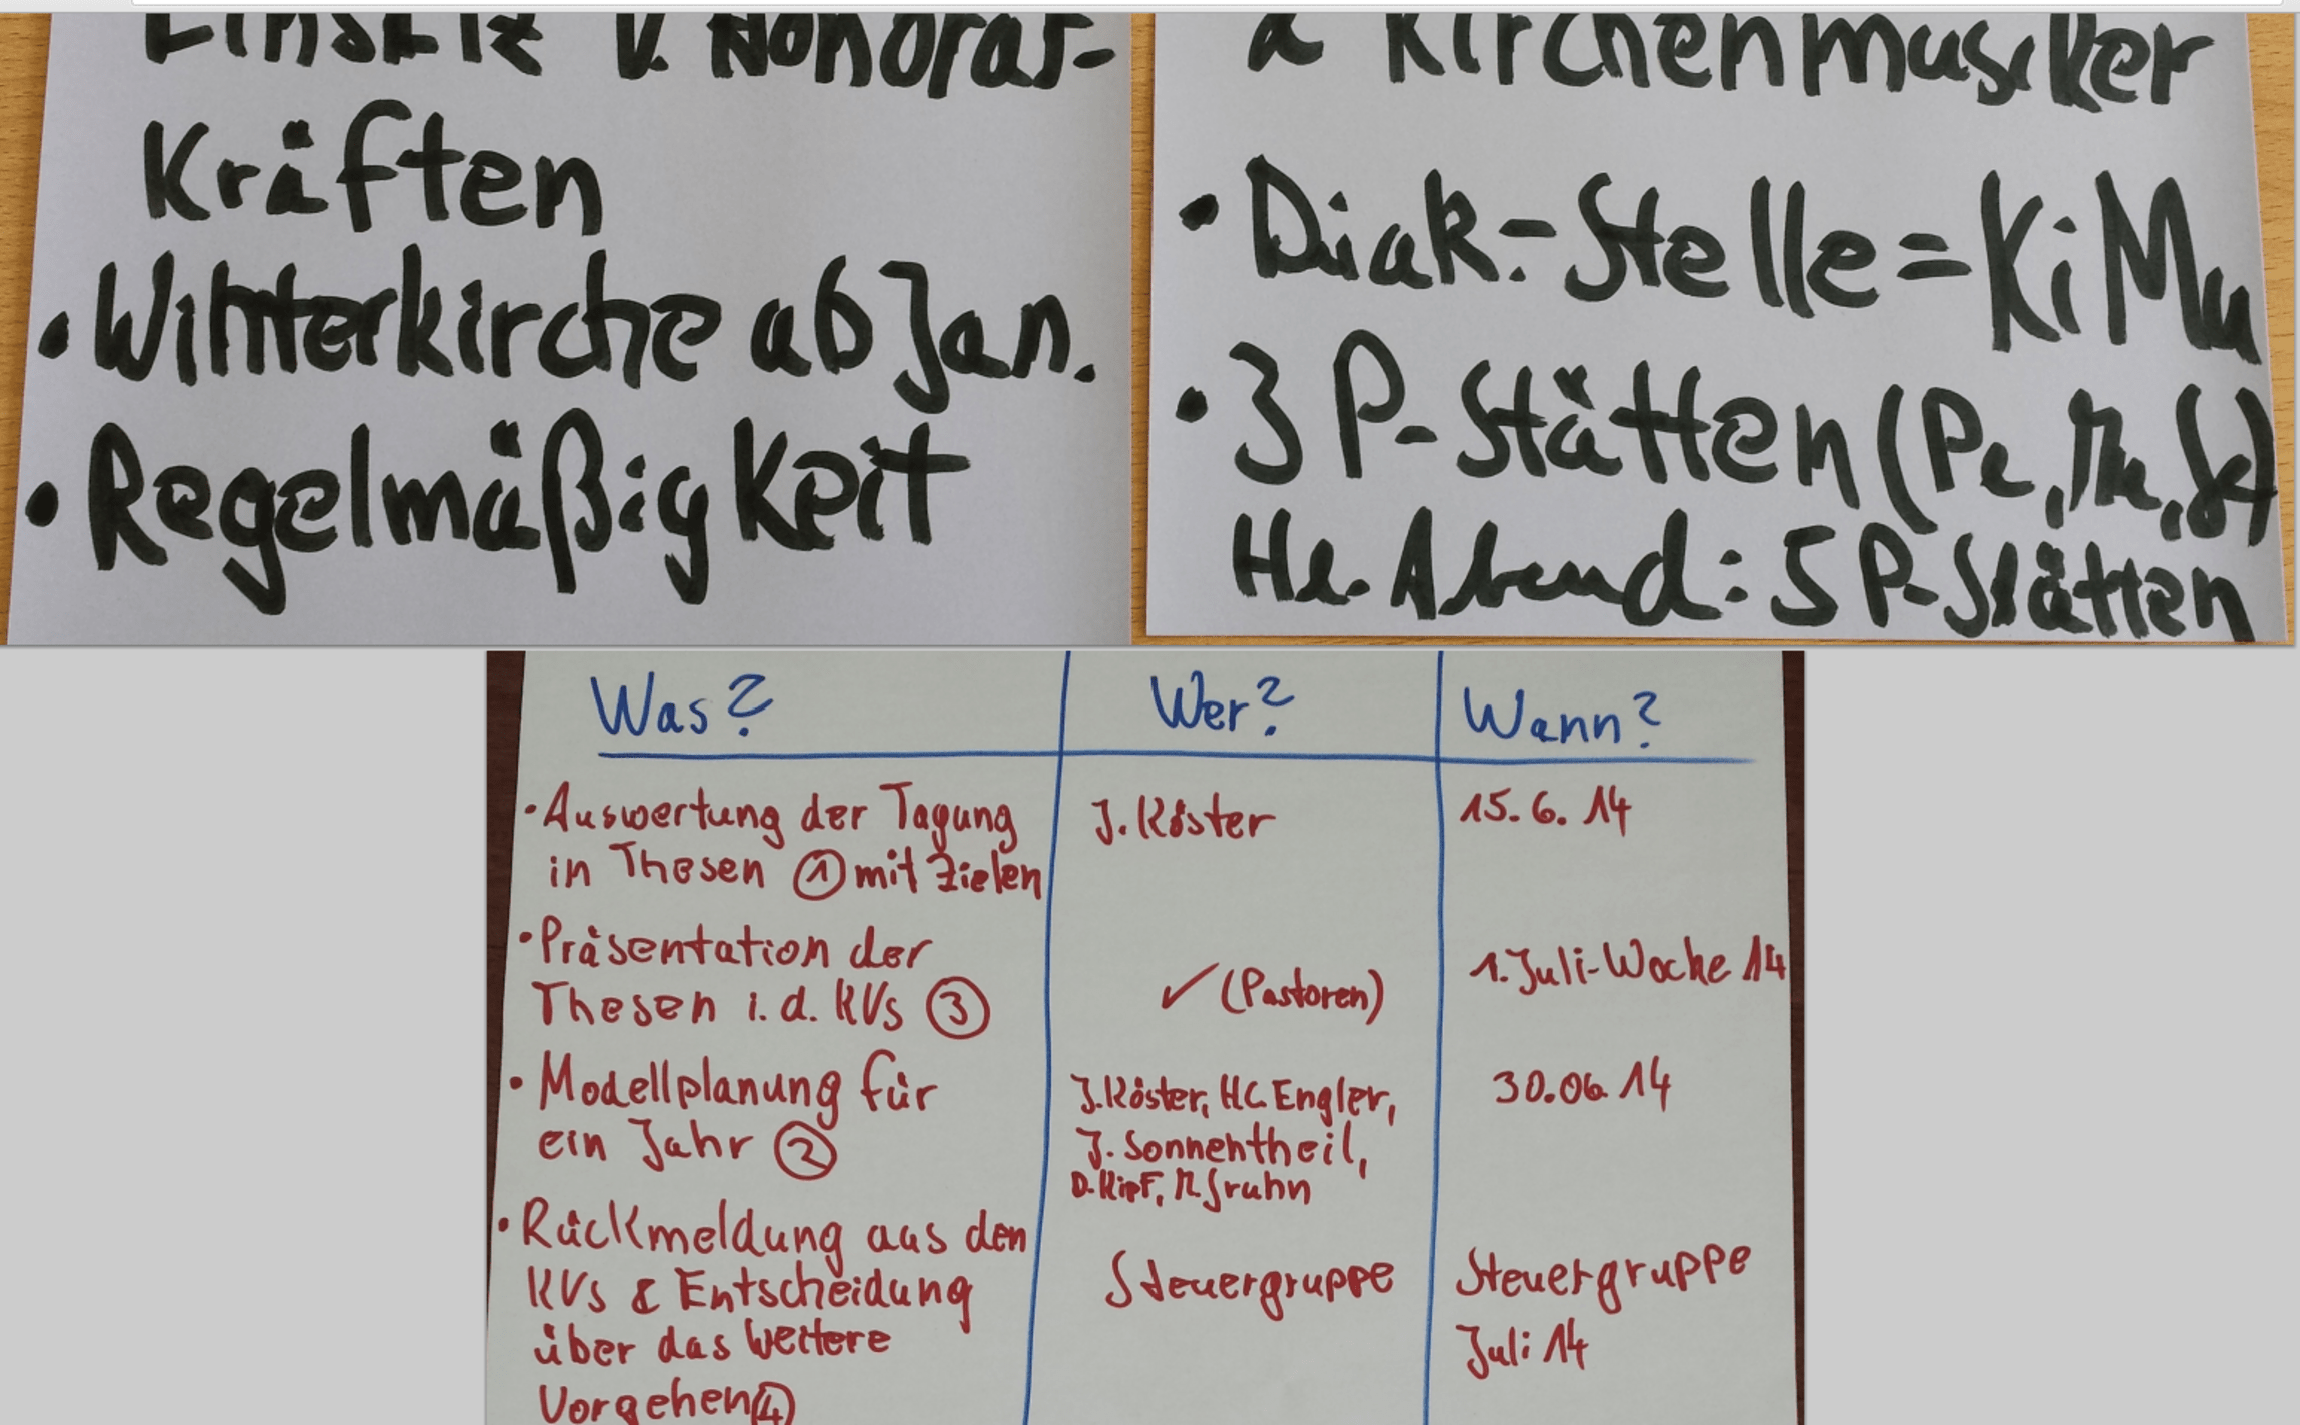 Einsatz v. Honorar-
Kräften
• Winterkirche ab Jan.
• Regelmäßigkeit
2 Kirchenmusiker
• Diak.-Stelle = KiMu
• 3 P-Stätten (Pe,
Hl. Abend: 5 P-Stätten
Was? Wer? Wann?
• Auswertung der Tagung J. Köster 15. 6. 14
in Thesen ① mit Zielen
• Präsentation der 1. Juli-Woche 14
Thesen i. d. KVs ③ ✓ (Pastoren)
• Modellplanung für J. Köster, HC. Engler, 30.06.14
ein Jahr ② J. Sonnentheil,
D. Kipf, M. Gruhn
• Rückmeldung aus den Steuergruppe Steuergruppe
KVs & Entscheidung Juli 14
über das weitere
Vorgehen ④